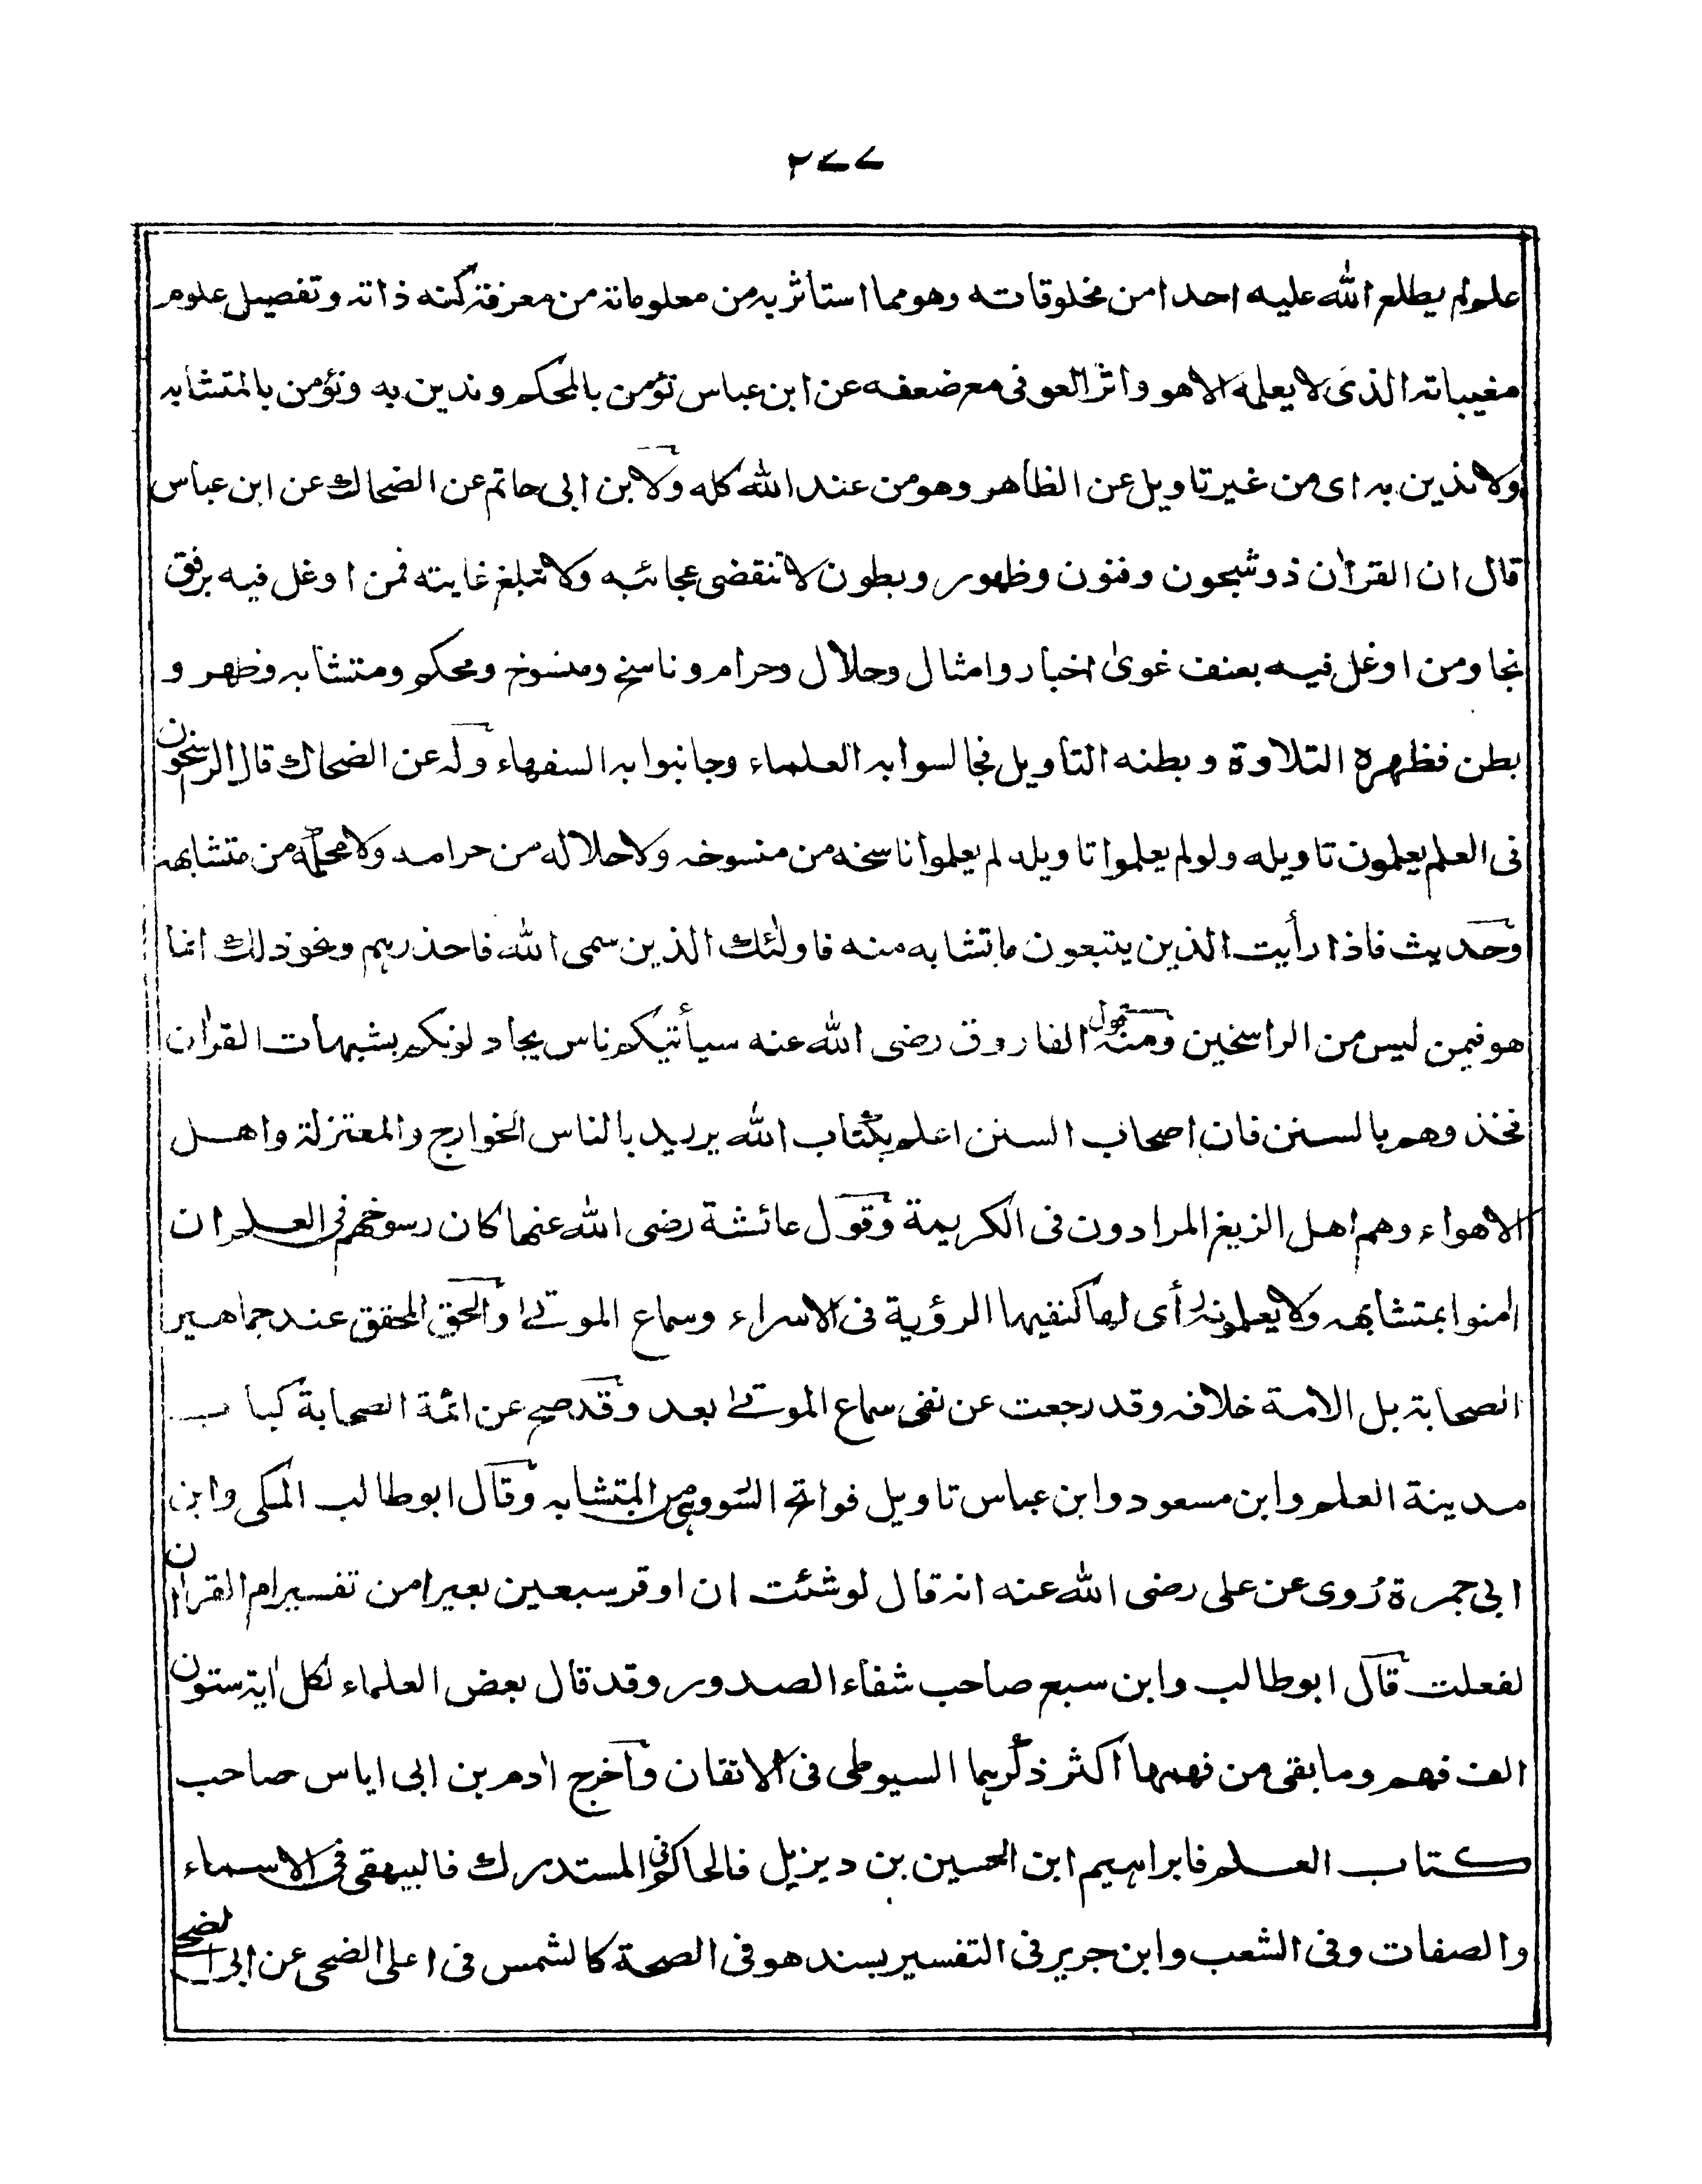 ٢٧٧
علم لم يطلع الله عليه احدا من مخلوقاته وهو مما استأثر به من معلوماته من معرفة كنه ذاته وتفصيل علوم
مغيباته الذى لا يعلمه الا هو واثر العوفى مع ضعفه عن ابن عباس نؤمن بالمحكم وندين به ونؤمن بالمتشابه
ولا ندين به اى من غير تاويل عن الظاهر وهو من عند الله كله ولابن ابى حاتم عن الضحاك عن ابن عباس
قال ان القراٰن ذو شجون وفنون وظهور وبطون لا تنقضى عجائبه ولا تبلغ غايته فمن اوغل فيه برفق
نجا ومن اوغل فيه بعنف غوىٰ اخبار وامثال وحلال وحرام وناسخ ومنسوخ ومحكم ومتشابه وظهر و
بطن فظهره التلاوة وبطنه التأويل فجالسوا به العلماء وجانبوا به السفهاء وله عن الضحاك قال الرسخون
فى العلم يعلمون تاويله ولو لم يعلموا تاويله لم يعلموا ناسخه من منسوخه ولا حلاله من حرامه ولا محكمه من متشابهه
وحديث فاذا رأيت الذين يتبعون ما تشابه منه فاولئك الذين سمى الله فاحذريهم ونحو ذلك انما
هو فيمن ليس من الراسخين ومنه قول الفاروق رضى الله عنه سيأتيكم ناس يجادلونكم بشبهات القراٰن
فخذوهم بالسنن فان اصحاب السنن اعلم بكتاب الله يريد بالناس الخوارج والمعتزلة واهل
الاهواء وهم اهل الزيغ المرادون فى الكريمة وقول عائشة رضى الله عنها كان رسوخهم فى العلم ان
اٰمنوا بمتشابهه ولا يعلمونه رأى لها كنفيها الرؤية فى الاسراء وسماع الموتےٰ والحق المحقق عند جماهير
الصحابة بل الامة خلافه وقد رجعت عن نفى سماع الموتےٰ بعد وقد صح عن ائمة الصحابة كباب
مدينة العلم وابن مسعود وابن عباس تاويل فواتح السور وهى من المتشابه وقال ابو طالب المكى وابن
ابى جمرة رُوى عن على رضى الله عنه انه قال لو شئت ان اوقر سبعين بعيرا من تفسير ام القراٰن
لفعلت قال ابو طالب وابن سبع صاحب شفاء الصدور وقد قال بعض العلماء لكل اٰية ستون
الف فهم وما بقى من فهمها اكثر ذكرهما السيوطى فى الاتقان وأخرج اٰدم بن ابى اياس صاحب
كتاب العلم فابراهيم ابن الحسين بن ديزيل فالحاكم فى المستدرك فالبيهقى فى الاسماء
والصفات وفى الشعب وابن جرير فى التفسير بسند هو فى الصحة كالشمس فى اعلى الضحى عن ابى الضحى